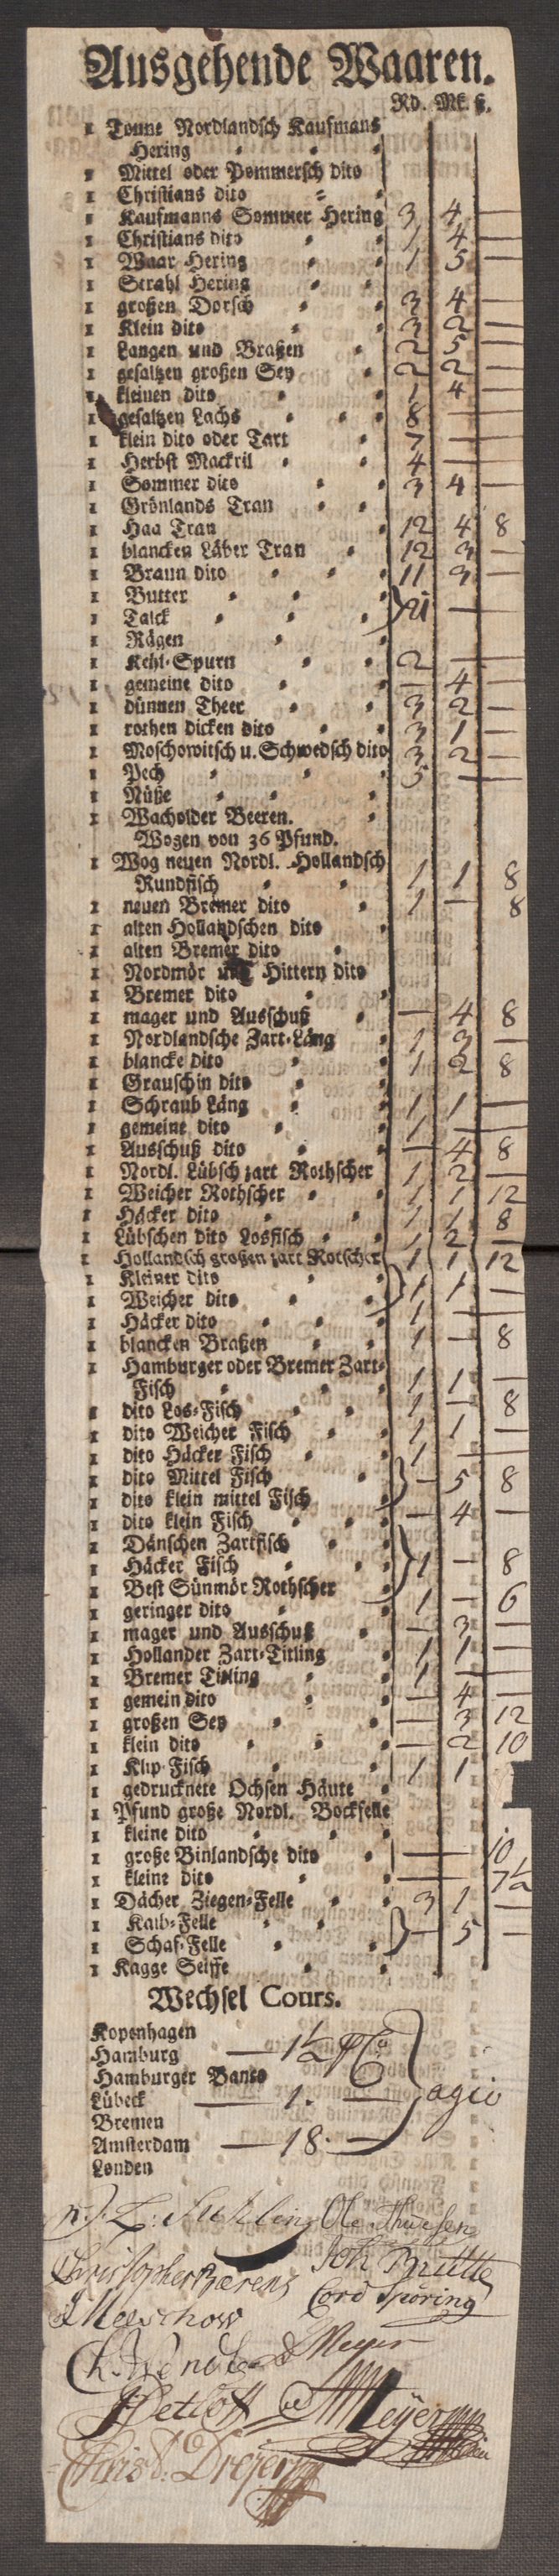 Ausgehende Waaren.
Rd. Mk. ß.
1 Tonne Nordlandsch Kaufmans
Hering
1 Mittel oder Pommersch dito
1 Christians dito
1 Kaufmanns Sommer Hering 3 4 —
1 Christians dito 1 4 —
1 Waar Hering 1 5 —
1 Strahl Hering
1 großen Dorsch 3 4 —
1 Klein dito 3 2 —
1 Langen und Braßen 2 5 —
1 gesaltzen großen Sey 2 2 —
1 kleinen dito 1 4 —
1 gesaltzen Lachs 8 —
1 klein dito oder Tart 7 — —
1 Herbst Mackril 4 —
1 Sommer dito 3 4 —
1 Grönlands Tran
1 Haa Tran 12 4 8
1 blancken Läber Tran 12 3 —
1 Braun dito 11 3 —
1 Butter
1 Talck } 21 —
1 Rägen
1 Kehl-Spurn 2 —
1 gemeine dito — 4 —
1 dünnen Theer 3 2 —
1 rothen dicken dito 3 1 —
1 Moschowitsch u. Schwedsch dito 3 2 —
1 Pech 5 — —
1 Nüße
1 Wacholder Beeren.
Wogen von 36 Pfund.
1 Wog neuen Nordl. Hollandsch
Rundfisch 1 1 8
1 neuen Bremer dito 1 — 8
1 alten Hollandschen dito
1 alten Bremer dito
1 Nordmör Hittern dito
1 Bremer dito
1 mager und Ausschuß — 4 8
1 Nordlandsche Zart-Läng 1 3 —
1 blancke dito 1 2 8
1 Grauschin dito
1 Schraub Läng 1 1 —
1 gemeine dito 1 — —
1 Ausschuß dito — 4 8
1 Nordl. Lübsch zart Rothscher 1 2 —
1 Weicher Rothscher 1 1 12
1 Häcker dito 1 1 8
1 Lübschen dito Losfisch 1 2 —
1 Hollandsch großen zart Rotscher 1 1 12
1 Kleiner dito
1 Weicher dito } 1 1 —
1 Häcker dito 1 — —
1 blancken Braßen 1 — 8
1 Hamburger oder Bremer Zart-
Fisch 1 1 —
1 dito Los-Fisch 1 — 8
1 dito Weicher Fisch 1 1 —
1 dito Häcker Fisch 1 — —
1 dito Mittel Fisch
1 dito klein mittel Fisch } — 5 8
1 dito klein Fisch — 4 —
1 Dänschen Zartfisch
1 Häcker Fisch } 1 — 8
1 Best Sünmör Rothscher
1 geringer dito 1 — 6
1 mager und Ausschuß — 3 —
1 Hollander Zart-Titling 1 1 —
1 Bremer Titling 1 — —
1 gemein dito — 4 —
1 großen Sey — 3 12
1 klein dito — 2 10
1 Klip-Fisch 1 1
1 gedrucknete Ochsen Häute
1 Pfund große Nordl. Bockfelle
1 kleine dito
1 große Binlandsche dito — — 10
1 kleine dito — — 7½
1 Dächer Ziegen-Felle 3 1 —
1 Kalb-Felle
1 Schaf-Felle } — 5 —
1 Kagge Seiffe
Wechsel Cours.
Kopenhagen
Hamburg — 1½ p Co
Hamburger Banco
Lübeck — 1. — } agio
Bremen
Amsterdam — 18. —
Londen
Christopher Barens
Cord Sporing
Meyer
Detloff
Meÿer
Christ: Dreyer